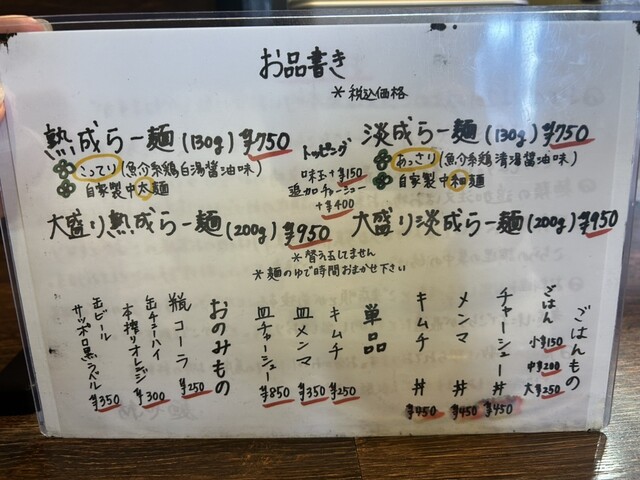 お品書き
＊税込価格
熟成らー麺(130g) ¥750
こってり(魚介系鶏白湯醤油味)
自家製中太麺
大盛り熟成らー麺(200g) ¥950
トッピング
味玉+¥150
追加チャーシュー
+¥400
淡成らー麺(130g) ¥750
あっさり(魚介系鶏清湯醤油味)
自家製中細麺
大盛り淡成らー麺(200g) ¥950
＊替え玉してません
＊麺のゆで時間おまかせ下さい
ごはんもの
ごはん 小¥150
中¥200
大¥250
チャーシュー丼 ¥450
メンマ丼 ¥450
キムチ丼 ¥450
単品
キムチ ¥250
皿メンマ ¥350
皿チャーシュー ¥850
おのみもの
瓶コーラ ¥250
缶チューハイ
本搾りオレンジ ¥300
缶ビール
サッポロ黒ラベル ¥350